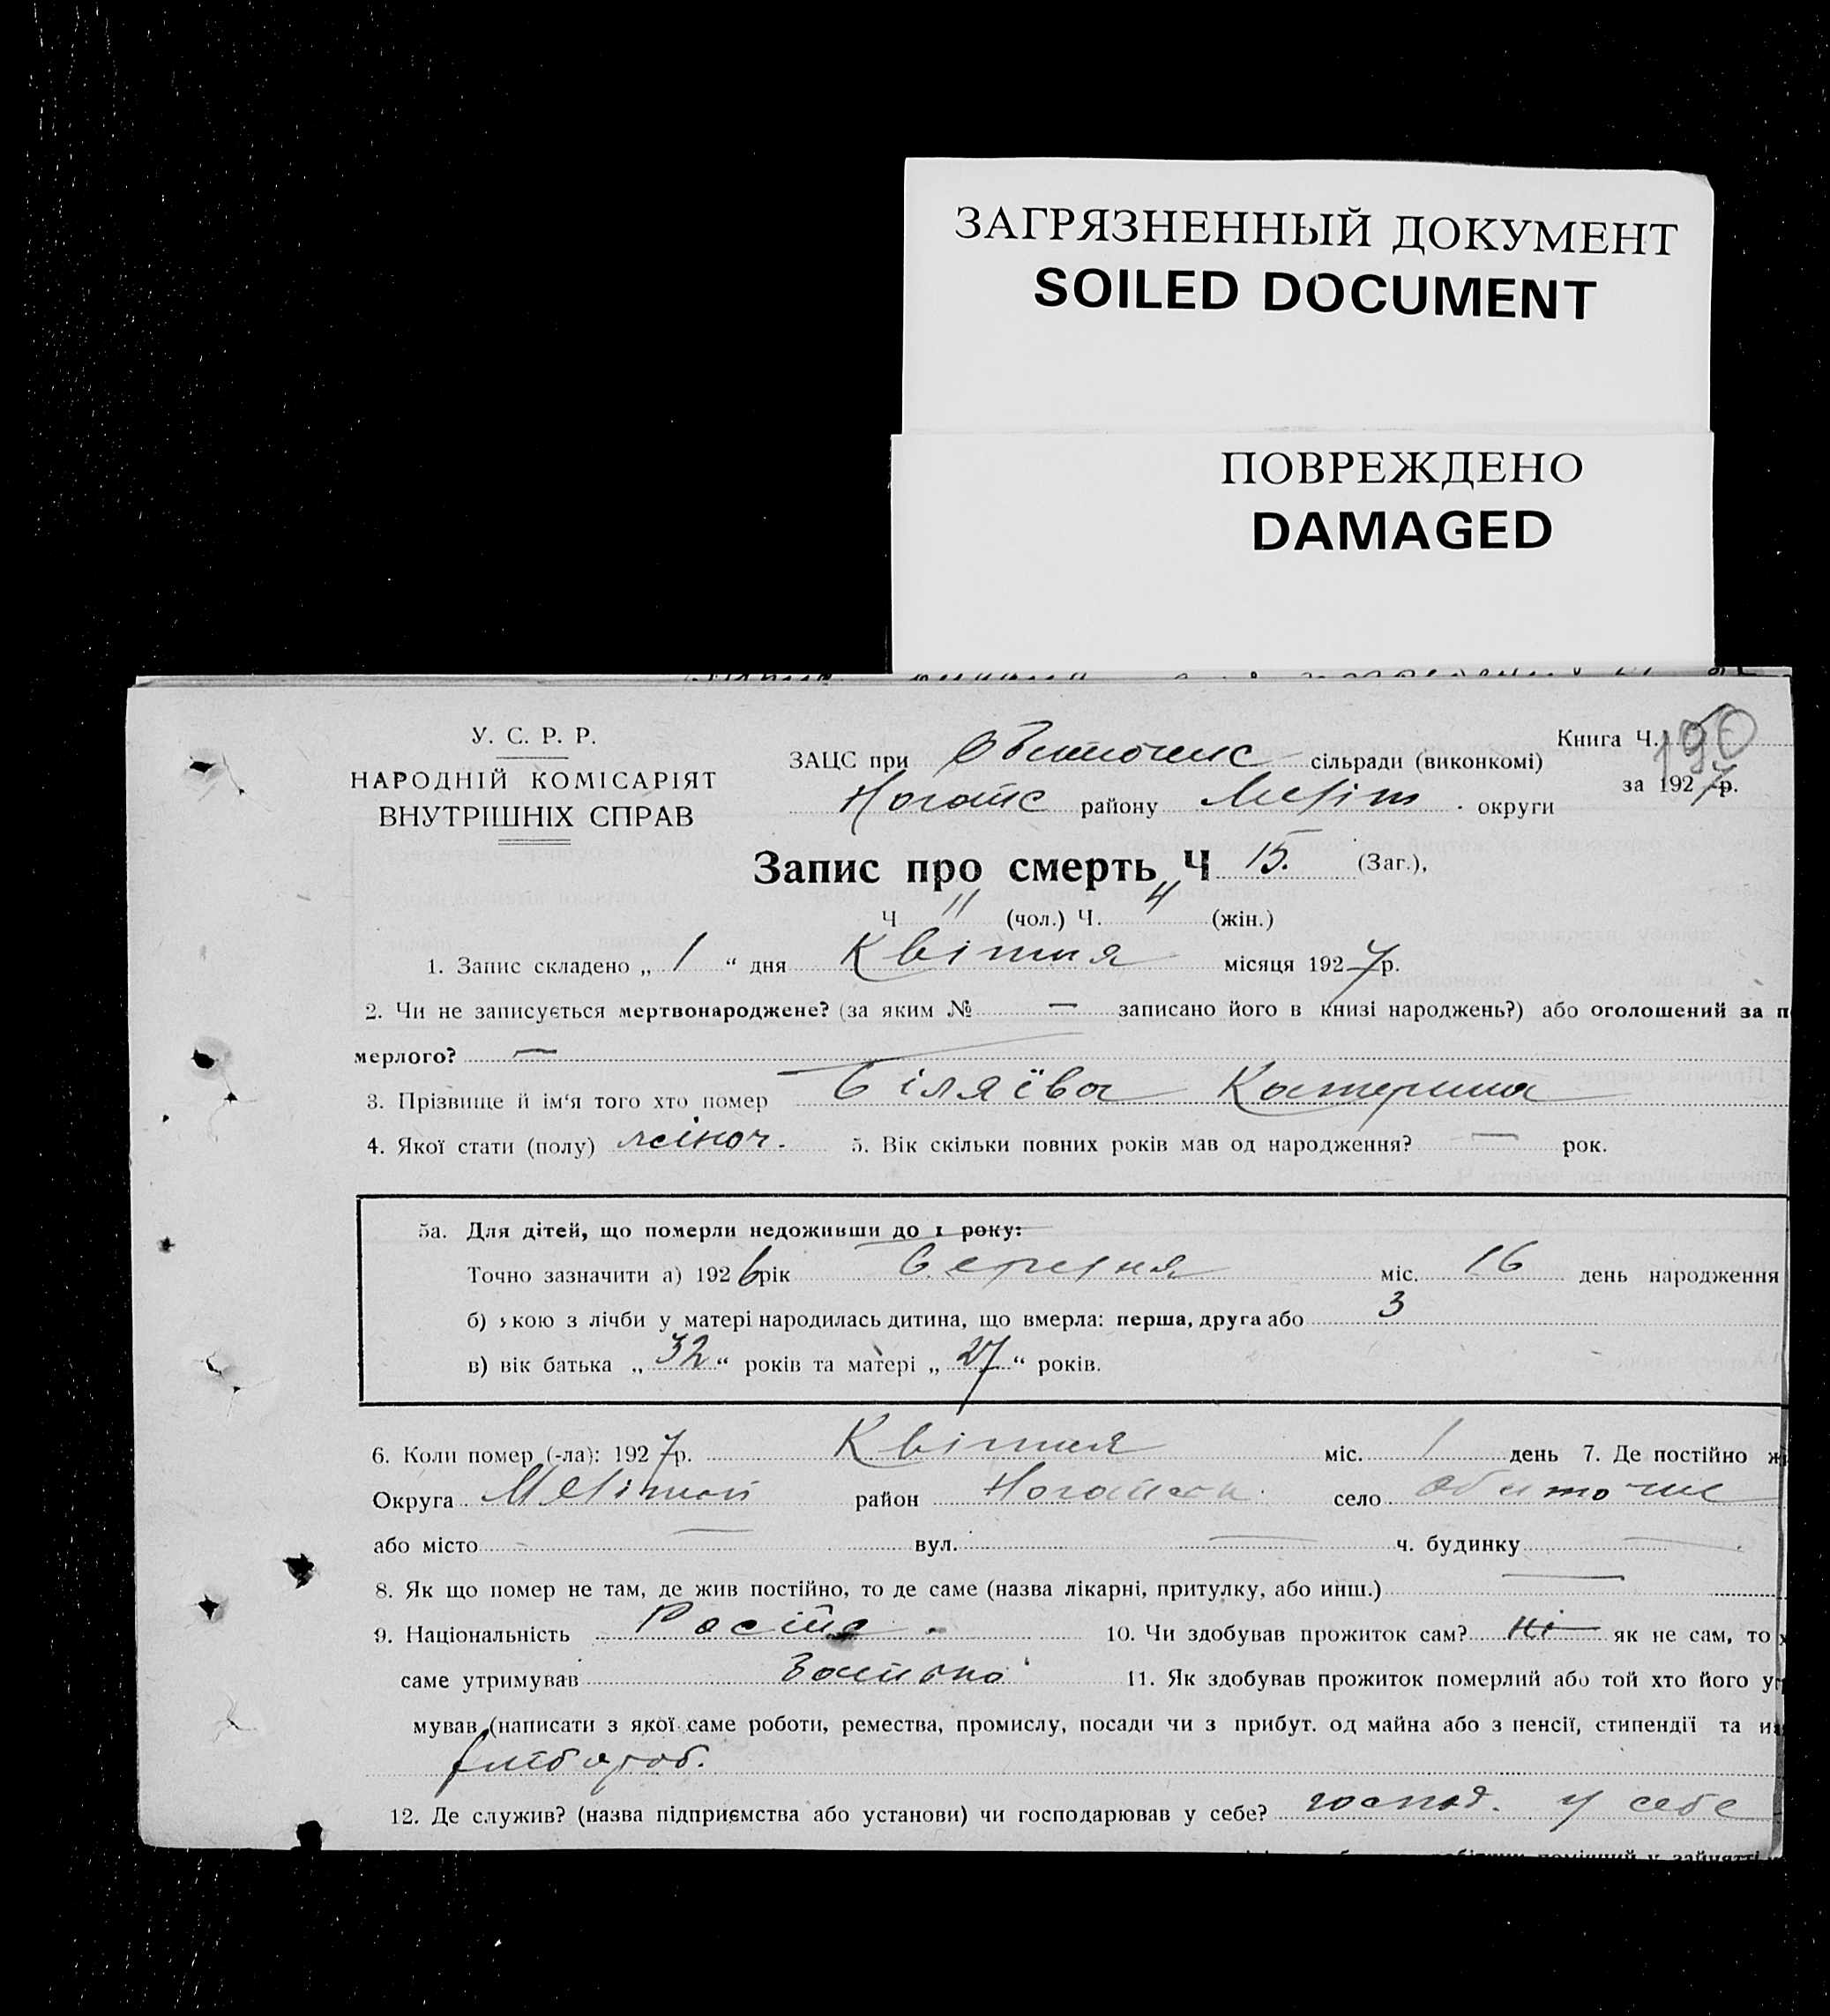 ЗАГРЯЗНЕННЫЙ ДОКУМЕНТ
SOILED DOCUMENT
ПОВРЕЖДЕНО
DAMAGED
У. С. Р. Р.
НАРОДНІЙ КОМІСАРІЯТ
ВНУТРІШНІХ СПРАВ
Книга Ч. 190
ЗАЦС при Обиточис сільради (виконкомі)
за 1927 р.
Ногайс району Меліт. округи
Запис про смерть Ч 15. (Заг.),
Ч 11 (чол.) Ч. 4 (жін.)
1. Запис складено „ 1 “ дня Квітня місяця 1927 р.
2. Чи не записується мертвонароджене? (за яким № — записано його в книзі народжень?) або оголошений за п
мерлого? —
3. Прізвище й ім‘я того хто помер Біляїва Катерина
4. Якої стати (полу) жіноч. 5. Вік скільки повних років мав од народження? — рок.
5а. Для дітей, що померли недоживши до 1 року:
Точно зазначити а) 1926 рік березня міс. 16 день народження
б) якою з лічби у матері народилась дитина, що вмерла: перша, друга або 3
в) вік батька „ 32 “ років та матері „ 27 “ років.
6. Коли помер (-ла): 1927 р. Квітня міс. 1 день 7. Де постійно жи
Округа Меліт район Ногайськ село Обиточне
або місто — вул. — ч. будинку —
8. Як що помер не там, де жив постійно, то де саме (назва лікарні, притулку, або инш.) —
9. Національність Росій 10. Чи здобував прожиток сам? Ні як не сам, то х
саме утримував батько 11. Як здобував прожиток померлий або той хто його ут
мував (написати з якої саме роботи, ремества, промислу, посади чи з прибут. од майна або з пенсії, стипендії та ин
хлібороб.
12. Де служив? (назва підприємства або установи) чи господарював у себе? господ. у себе